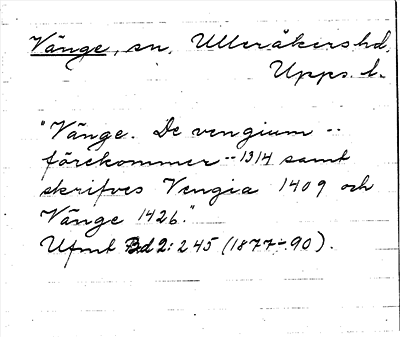 Vänge, sn, Ulleråkers hd,
Upps. l.
"Vänge. De vengium --
förekommer -- 1314 samt
skrifves Vengia 1409 och
Vänge 1426."
Ufmt Bd 2: 245 (1877-90).